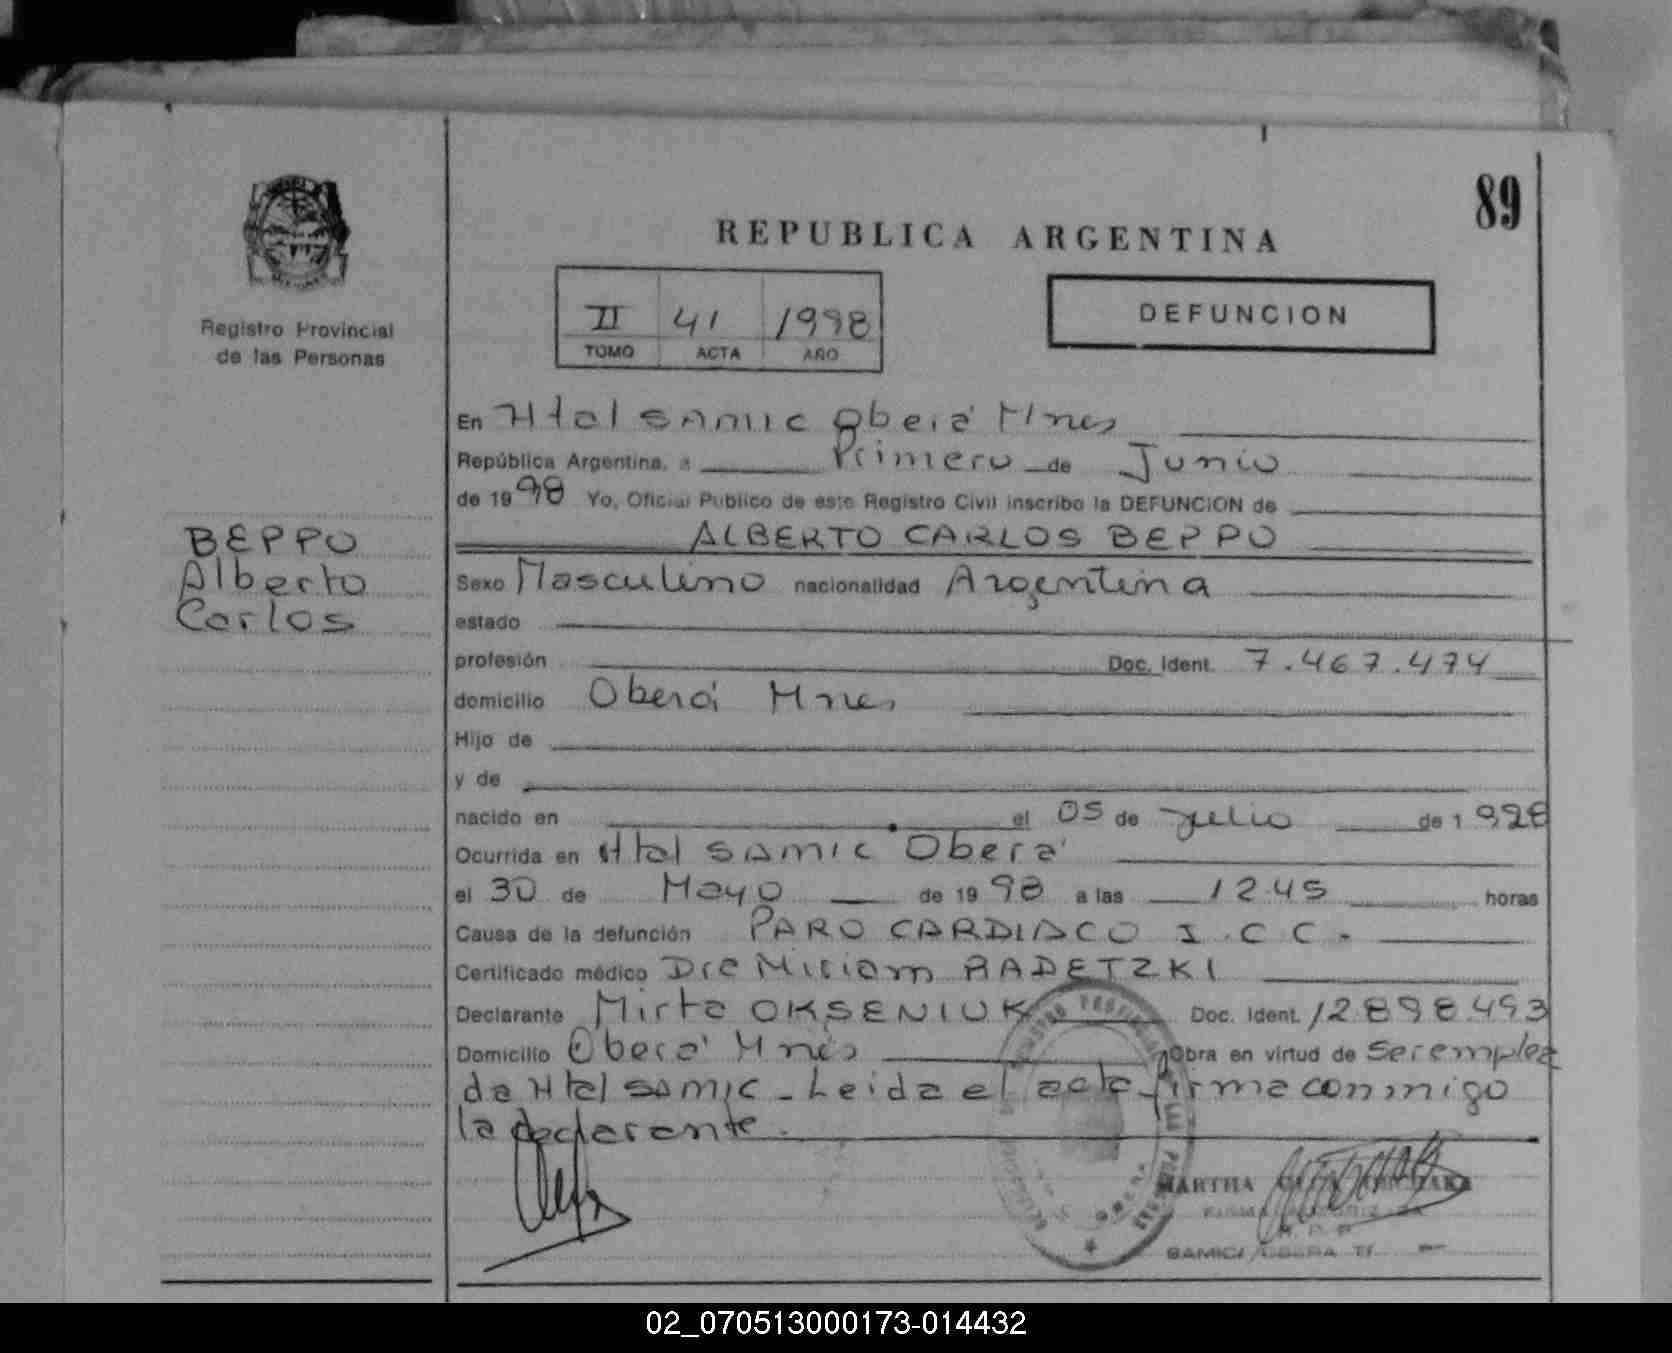 89
REPUBLICA ARGENTINA
Registro Provincial
de las Personas
II 41 1998
TOMO ACTA AÑO
DEFUNCION
En Htal SAMIC Oberá Mnes
República Argentina, a Primero de Junio
de 1998 Yo, Oficial Publico de este Registro Civil inscribo la DEFUNCION de
ALBERTO CARLOS BEPPO
BEPPO
Alberto
Carlos
Sexo Masculino nacionalidad Argentina
estado
profesión Doc. Ident. 7.467.474
domicilio Oberá Mnes
Hijo de
y de
nacido en el 05 de Julio de 1928
Ocurrida en Htal SAMIC Oberá
el 30 de Mayo de 1998 a las 12.45 horas
Causa de la defunción PARO CARDIACO I.C.C.
Certificado médico Dra Miriam RADETZKI
Declarante Mirta OKSENIUK Doc. Ident. 12898493
Domicilio Oberá Mnes Obra en virtud de ser emplea
da Htal SAMIC - Leida el acta firma conmigo
la declarante.
MARTHA
SAMIC OBERA
02_070513000173-014432